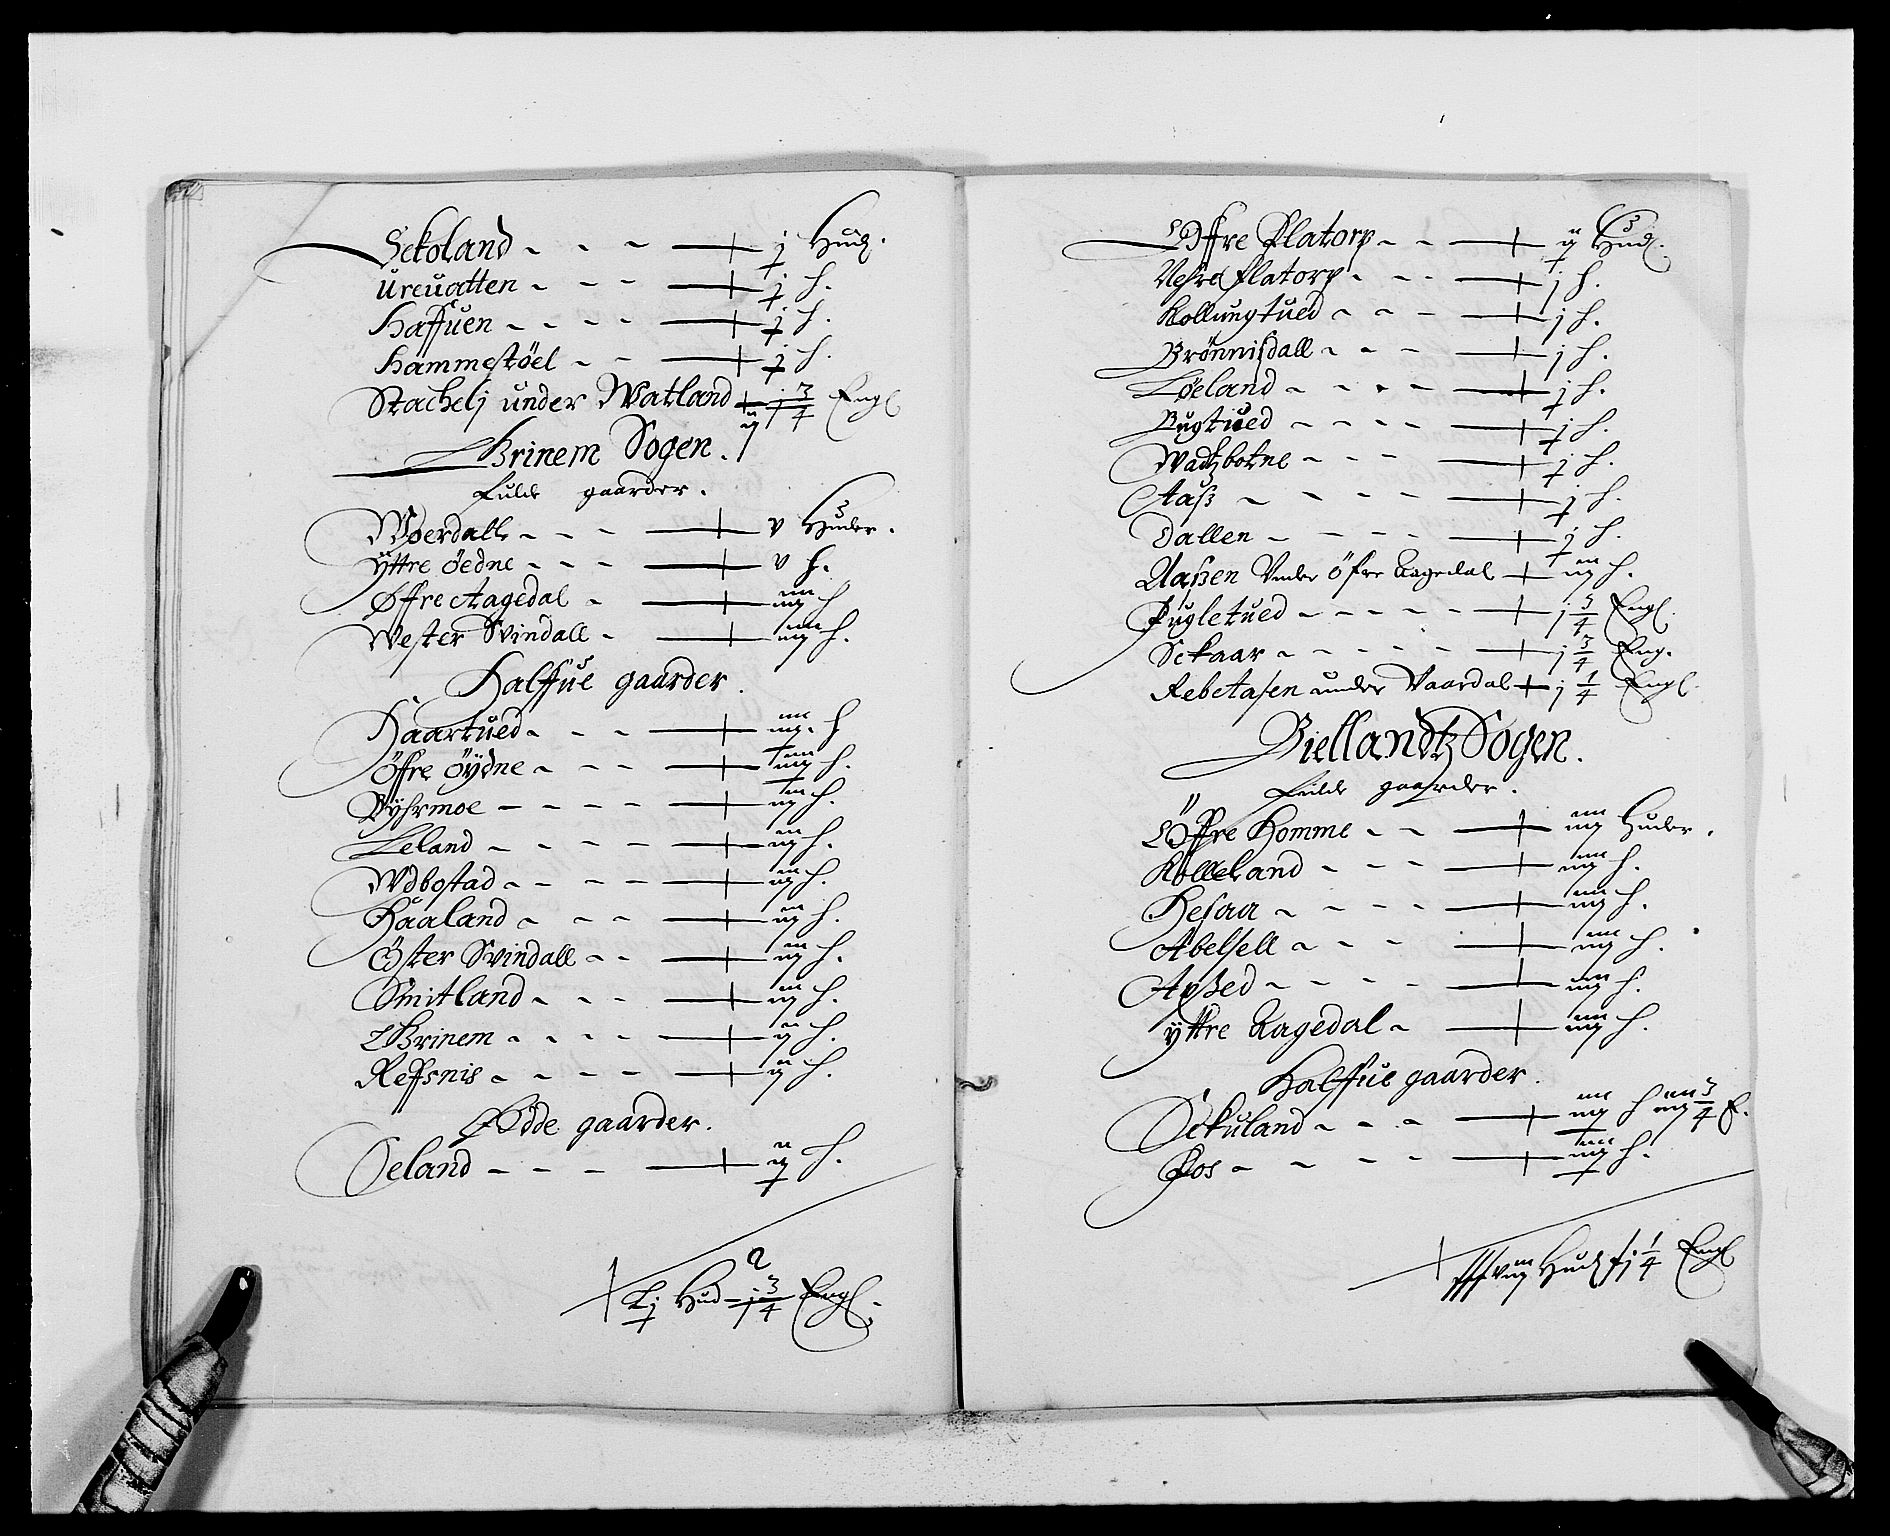 Sekoland - - - j Hud.
Ureuatten - - - j h.
Haffuen - - - - j h.
Hammestöel - - j h.
Stachelj under Watland j 3/4 Engl
Grinem Sogen.
Fulde gaarder.
Woerdall - - - v Huder.
Ÿttre öedne - - - v h.
Øffre Aagedal - iiij h
Wester Svindall - iiij h.
Halffue gaarder.
Haartued - - - iiij h
Öffre öÿdne - - - iiij h.
Bÿhrmoe - - - - iij h.
Leland - - - - iij h.
Wdbostad - - - - iij h.
Haaland - - - iij h.
Öster Svindall - - iij h.
Smitland - - - iij h.
Grinem - - - - ij h.
Reffsnis - - - - ij h.
Øde gaarder.
Seland - - - ij h.
Lj Hud j 3/4 Engl.
Öffre Flatorp - - ij Hud.
Nehre flatorp - - - j h.
Kollungtued - - - j h.
Brönnisdall - - - j h.
Löeland - - - - j h.
Bugtued - - - - j h.
Wadtzbotne - - - j h.
Aaß - - - - j h.
Dallen - - - - j h.
Aaßen Under Öfre Aagedal iiij h.
Fugletued - - - - - j 3/4 Engl.
Sckaar - - - - - j 3/4 Eng.
Rebetasen under Vaardal j 1/4 Engl.
Biellandtz Sogen.
Fulde gaarder.
Öffre Homme - - iiij Huder.
Kolleland - - - iiij h.
Hesaa - - - - iiij h.
Abelsell - - - iiij h.
Apßed - - - - iiij h.
ÿttre Aagedal - iiij h.
Halffue gaarder.
Sckuland - - - iiij h 3/4 E.
Fos - - - - iiij h.
Hud j 1/4 Engl